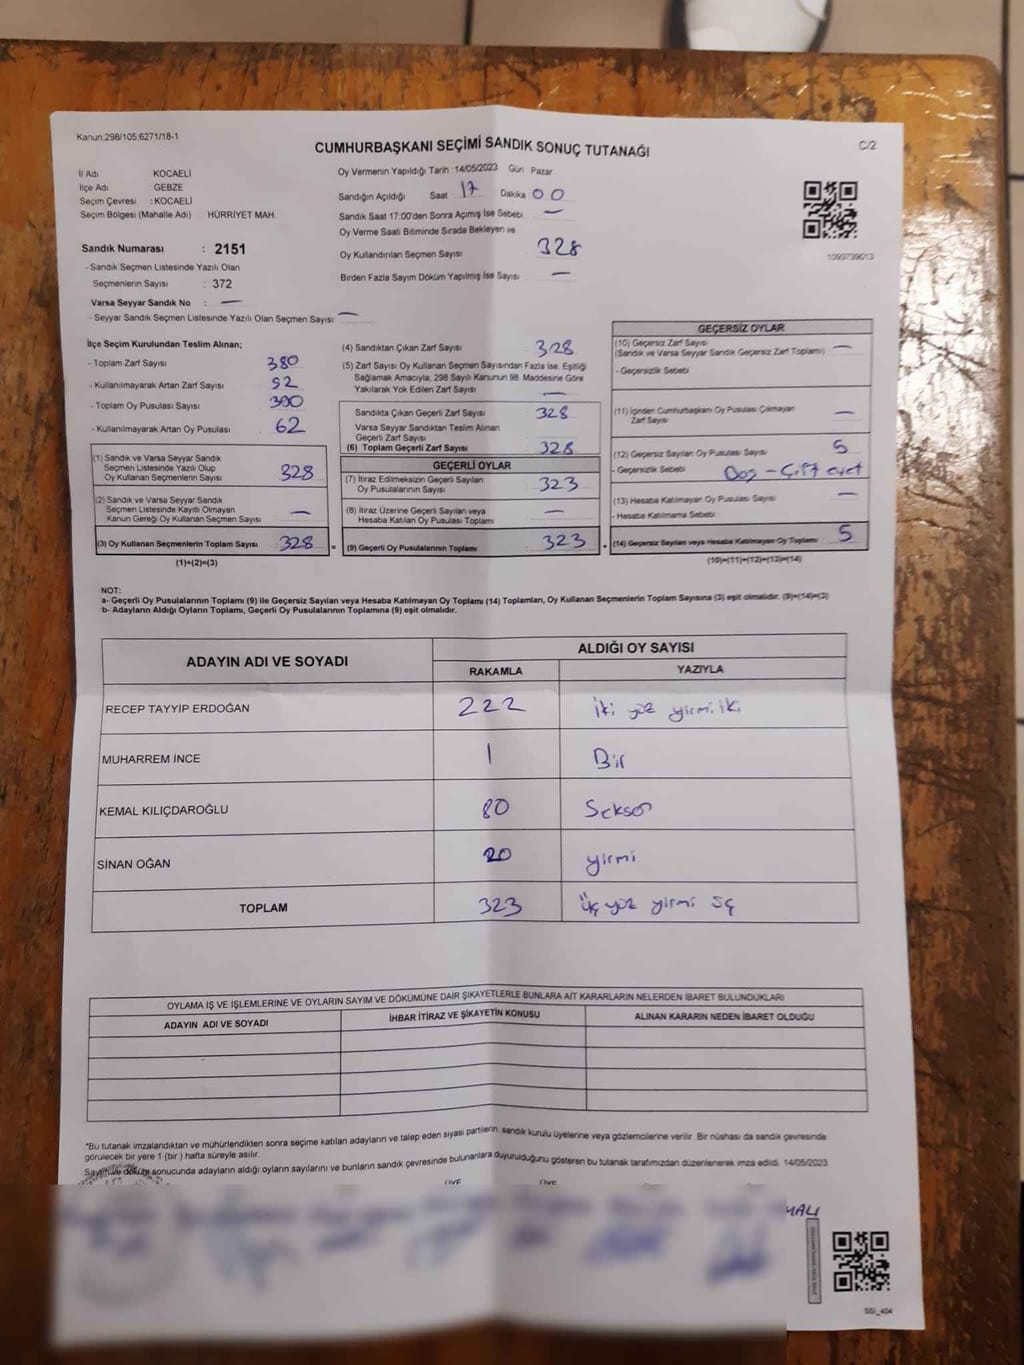 Kanun:298/105;6271/18-1
CUMHURBAŞKANI SEÇİMİ SANDIK SONUÇ TUTANAĞI
C/2
İl Adı KOCAELİ
İlçe Adı GEBZE
Seçim Çevresi : KOCAELİ
Seçim Bölgesi (Mahalle Adı) HÜRRİYET MAH.
Sandık Numarası : 2151
- Sandık Seçmen Listesinde Yazılı Olan
Seçmenlerin Sayısı : 372
Varsa Seyyar Sandık No : —
- Seyyar Sandık Seçmen Listesinde Yazılı Olan Seçmen Sayısı: —
Oy Vermenin Yapıldığı Tarih :14/05/2023 Gün Pazar
Sandığın Açıldığı Saat 17 Dakika 00
Sandık Saat 17:00'den Sonra Açımış İse Sebebi —
Oy Verme Saati Bitiminde Sırada Bekleyen ve
Oy Kullandırılan Seçmen Sayısı 328
Birden Fazla Sayım Döküm Yapılmış İse Sayısı —
1093739013
İlçe Seçim Kurulundan Teslim Alınan;
- Toplam Zarf Sayısı 380
- Kullanılmayarak Artan Zarf Sayısı 52
- Toplam Oy Pusulası Sayısı 390
- Kullanılmayarak Artan Oy Pusulası 62
(1) Sandık ve Varsa Seyyar Sandık
Seçmen Listesinde Yazılı Olup
Oy Kullanan Seçmenlerin Sayısı 328
(2) Sandık ve Varsa Seyyar Sandık
Seçmen Listesinde Kayıtlı Olmayan
Kanun Gereği Oy Kullanan Seçmen Sayısı —
(3) Oy Kullanan Seçmenlerin Toplam Sayısı 328 =
(1)+(2)=(3)
(4) Sandıktan Çıkan Zarf Sayısı 328
(5) Zarf Sayısı Oy Kullanan Seçmen Sayısından Fazla İse, Eşitliği
Sağlamak Amacıyla, 298 Sayılı Kanunun 98. Maddesine Göre
Yakılarak Yok Edilen Zarf Sayısı —
Sandıkta Çıkan Geçerli Zarf Sayısı 328
Varsa Seyyar Sandıktan Teslim Alınan
Geçerli Zarf Sayısı
(6) Toplam Geçerli Zarf Sayısı 328
GEÇERLİ OYLAR
(7) İtiraz Edilmeksizin Geçerli Sayılan
Oy Pusulalarının Sayısı 323
(8) İtiraz Üzerine Geçerli Sayılan veya
Hesaba Katılan Oy Pusulası Toplamı —
(9) Geçerli Oy Pusulalarının Toplamı 323 +
GEÇERSİZ OYLAR
(10) Geçersiz Zarf Sayısı
(Sandık ve Varsa Seyyar Sandık Geçersiz Zarf Toplamı) —
- Geçersizlik Sebebi
(11) İçinden Cumhurbaşkanı Oy Pusulası Çıkmayan
Zarf Sayısı —
(12) Geçersiz Sayılan Oy Pusulası Sayısı 5
- Geçersizlik Sebebi Boş - Çift evet
(13) Hesaba Katılmayan Oy Pusulası Sayısı —
- Hesaba Katılmama Sebebi
(14) Geçersiz Sayılan veya Hesaba Katılmayan Oy Toplamı 5
(10)+(11)+(12)+(13)=(14)
NOT:
a- Geçerli Oy Pusulaları Toplamı (9) ile Geçersiz Sayılan veya Hesaba Katılmayan Oy Toplamı (14) Toplamları, Oy Kullanan Seçmenlerin Toplam Sayısına (3) eşit olmalıdır. (9)+(14)=(3)
b- Adayların Aldığı Oyların Toplamı, Geçerli Oy Pusulalarının Toplamına (9) eşit olmalıdır.
ADAYIN ADI VE SOYADI
ALDIĞI OY SAYISI
RAKAMLA YAZIYLA
RECEP TAYYİP ERDOĞAN 222 İki yüz yirmi iki
MUHARREM İNCE 1 Bir
KEMAL KILIÇDAROĞLU 80 Seksen
SİNAN OĞAN 20 yirmi
TOPLAM 323 Üç yüz yirmi üç
OYLAMA İŞ VE İŞLEMLERİNE VE OYLARIN SAYIM VE DÖKÜMÜNE DAİR ŞİKAYETLERLE BUNLARA AİT KARARLARIN NELERDEN İBARET BULUNDUKLARI
ADAYIN ADI VE SOYADI İHBAR İTİRAZ VE ŞİKAYETİN KONUSU ALINAN KARARIN NEDEN İBARET OLDUĞU
*Bu tutanak imzalandıktan ve mühürlendikten sonra seçime katılan adayların ve talep eden siyasi partilerin sandık kurulu üyelerine veya gözlemcilerine verilir. Bir nüshası da sandık çevresinde
görülecek bir yere 1 (bir ) hafta süreyle asılır.
Sayım ve döküm sonucunda adayların aldığı oyların sayılarını ve bunların sandık çevresinde bulunanlara duyurulduğunu gösteren bu tutanak tarafımızdan düzenlenerek imza edildi. 14/05/2023
ÜYE ÜYE
MALI
SSI_404